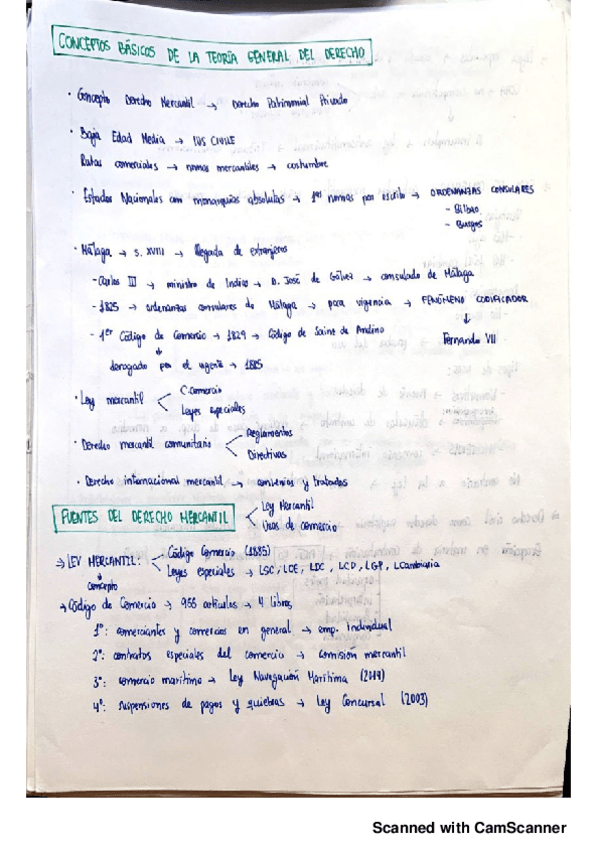 CONCEPTOS BÁSICOS DE LA TEORÍA GENERAL DEL DERECHO
· Concepto Derecho Mercantil → Derecho Patrimonial Privado
· Baja Edad Media → IUS CIVILE
Rutas comerciales → normas mercantiles → costumbre
· Estados Nacionales con monarquías absolutas → 1as normas por escrito → ORDENANZAS CONSULARES
- Bilbao
- Burgos
· Málaga → s. XVIII → llegada de extranjeros
- Carlos III → ministro de Indias → D. José de Gálvez → consulado de Málaga
- 1825 → ordenanzas consulares de Málaga → para vigencia → FENÓMENO CODIFICADOR
↓
- 1er Código de Comercio → 1829 → Código de Sainz de Andino Fernando VII
↓
derogado por el vigente → 1885
· Ley mercantil < C. Comercio
Leyes especiales
· Derecho mercantil comunitario < Reglamentos
Directivas
· Derecho internacional mercantil → convenios y tratados
FUENTES DEL DERECHO MERCANTIL < Ley Mercantil
Usos de comercio
→ LEY MERCANTIL: < Código Comercio (1885)
Leyes especiales → LSC, LOE, LDC, LCD, LGP, LCambiaria
concepto
→ Código de Comercio → 955 artículos → 4 libros
1º: comerciantes y comercios en general → emp. individual
2º: contratos especiales del comercio → comisión mercantil
3º: comercio marítimo → Ley Navegación Marítima
4º: suspensiones de pagos y quiebras → Ley Concursal (2003)
Scanned with CamScanner